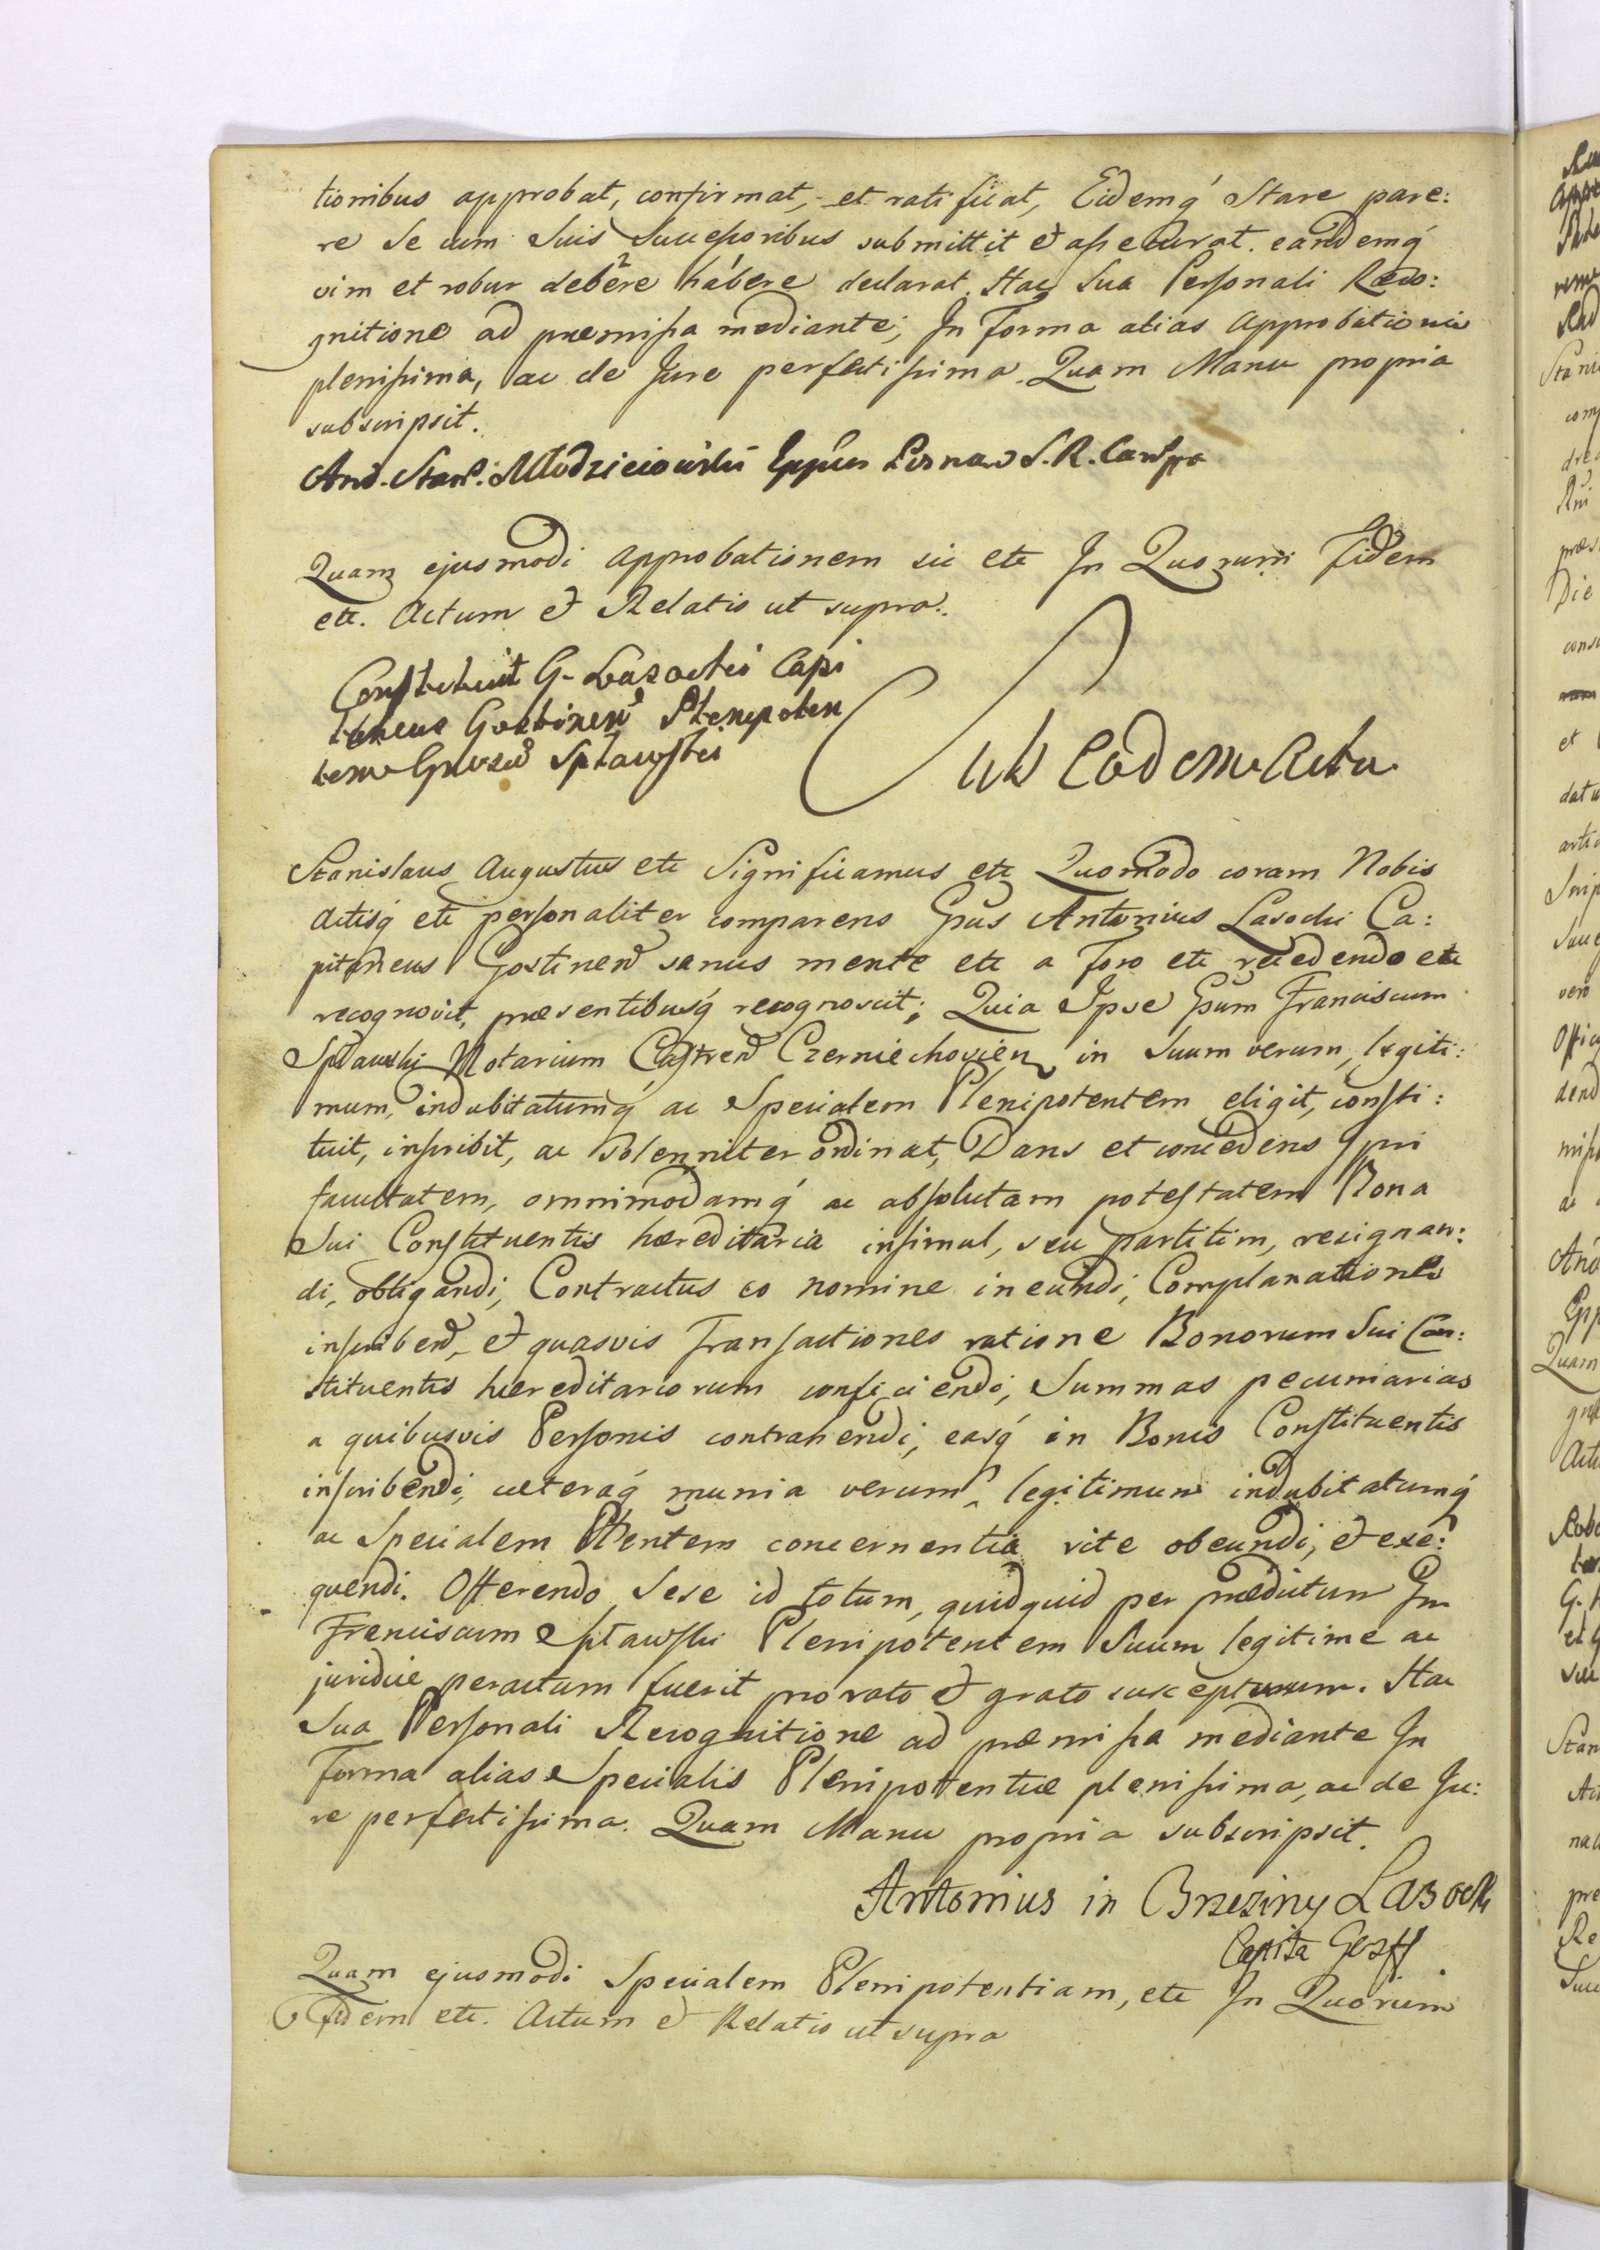 tionibus approbat, confirmat, et ratificat, Eidemq́ Stare pare:
re Se cum Suis Successoribus submittit et assecurat. eandemq́
vim et robur debere habere declarat. Hac Sua Personali Reco:
gnitione ad præmissa mediante; In Forma alias Approbationis
plenissima, ac de Jure perfectissima. Quam Manu propria
subscripsit.
And. Stan. Młodzieiowski Epp̃us Posnan S. R. Canſ
Quam ejusmodi Approbationem sic etc In Quorum Fidem
etc. Actum et Relatio ut supra.
Constituit G. Lasocki Capi
taneus Gostinen̄ Plenipoten
tem Gn̄osū Spławski
Sub Eodem Actu
Stanislaus Augustus etc Significamus etc Quomodo coram Nobis
Actisq́ etc personaliter comparens Gn̄sus Antonius Lasocki Ca:
pitaneus Gostinen̄ sanus mente etc a Foro etc recedendo etc
recognovit, præsentibusq́ recognoscit; Quia Ipse Gn̄sum Franciscum
Spławski Notarium Castren̄ Czerniechovien in Suum verum, legiti:
mum, indubitatumq́ ac Specialem Plenipotentem eligit, consti:
tuit, inscribit, ac Solenniter ordinat, Dans et concedens ipsi
facultatem, omnimodamq́ ac absolutam potestatem Bona
Sui Constituentis hæreditaria insimul, seu partitim, resignan:
di, obligandi, Contractus eo nomine ineundi, Complanationes
inscriben̄, et quasvis Transactiones ratione Bonorum Sui Con:
stituentis hæreditariorum conficiendi, Summas pecuniarias
a quibusvis Personis contrahendi, easq́ in Bonis Constituentis
inscribendi, cæteraq́ munia verum, legitimum indubitatumq́
ac Specialem Plentem concernentia rite obeundi, et exe:
quendi. Offerendo Sese id totum, quidquid per prædictum Gn
Franciscum Spławski Plenipotentem Suum legitime ac
juridice peractum fuerit pro rato et grato suscepturum. Hac
Sua Personali Recognitione ad præmissa mediante In
Forma alias Specialis Plenipotentiæ plenissima, ac de Ju:
re perfectissima. Quam Manu propria subscripsit.
Antonius in Brzeziny Lasocki
Capita Gost
Quam ejusmodi Specialem Plenipotentiam, etc In Quorum
Fidem etc. Actum et Relatio ut supra